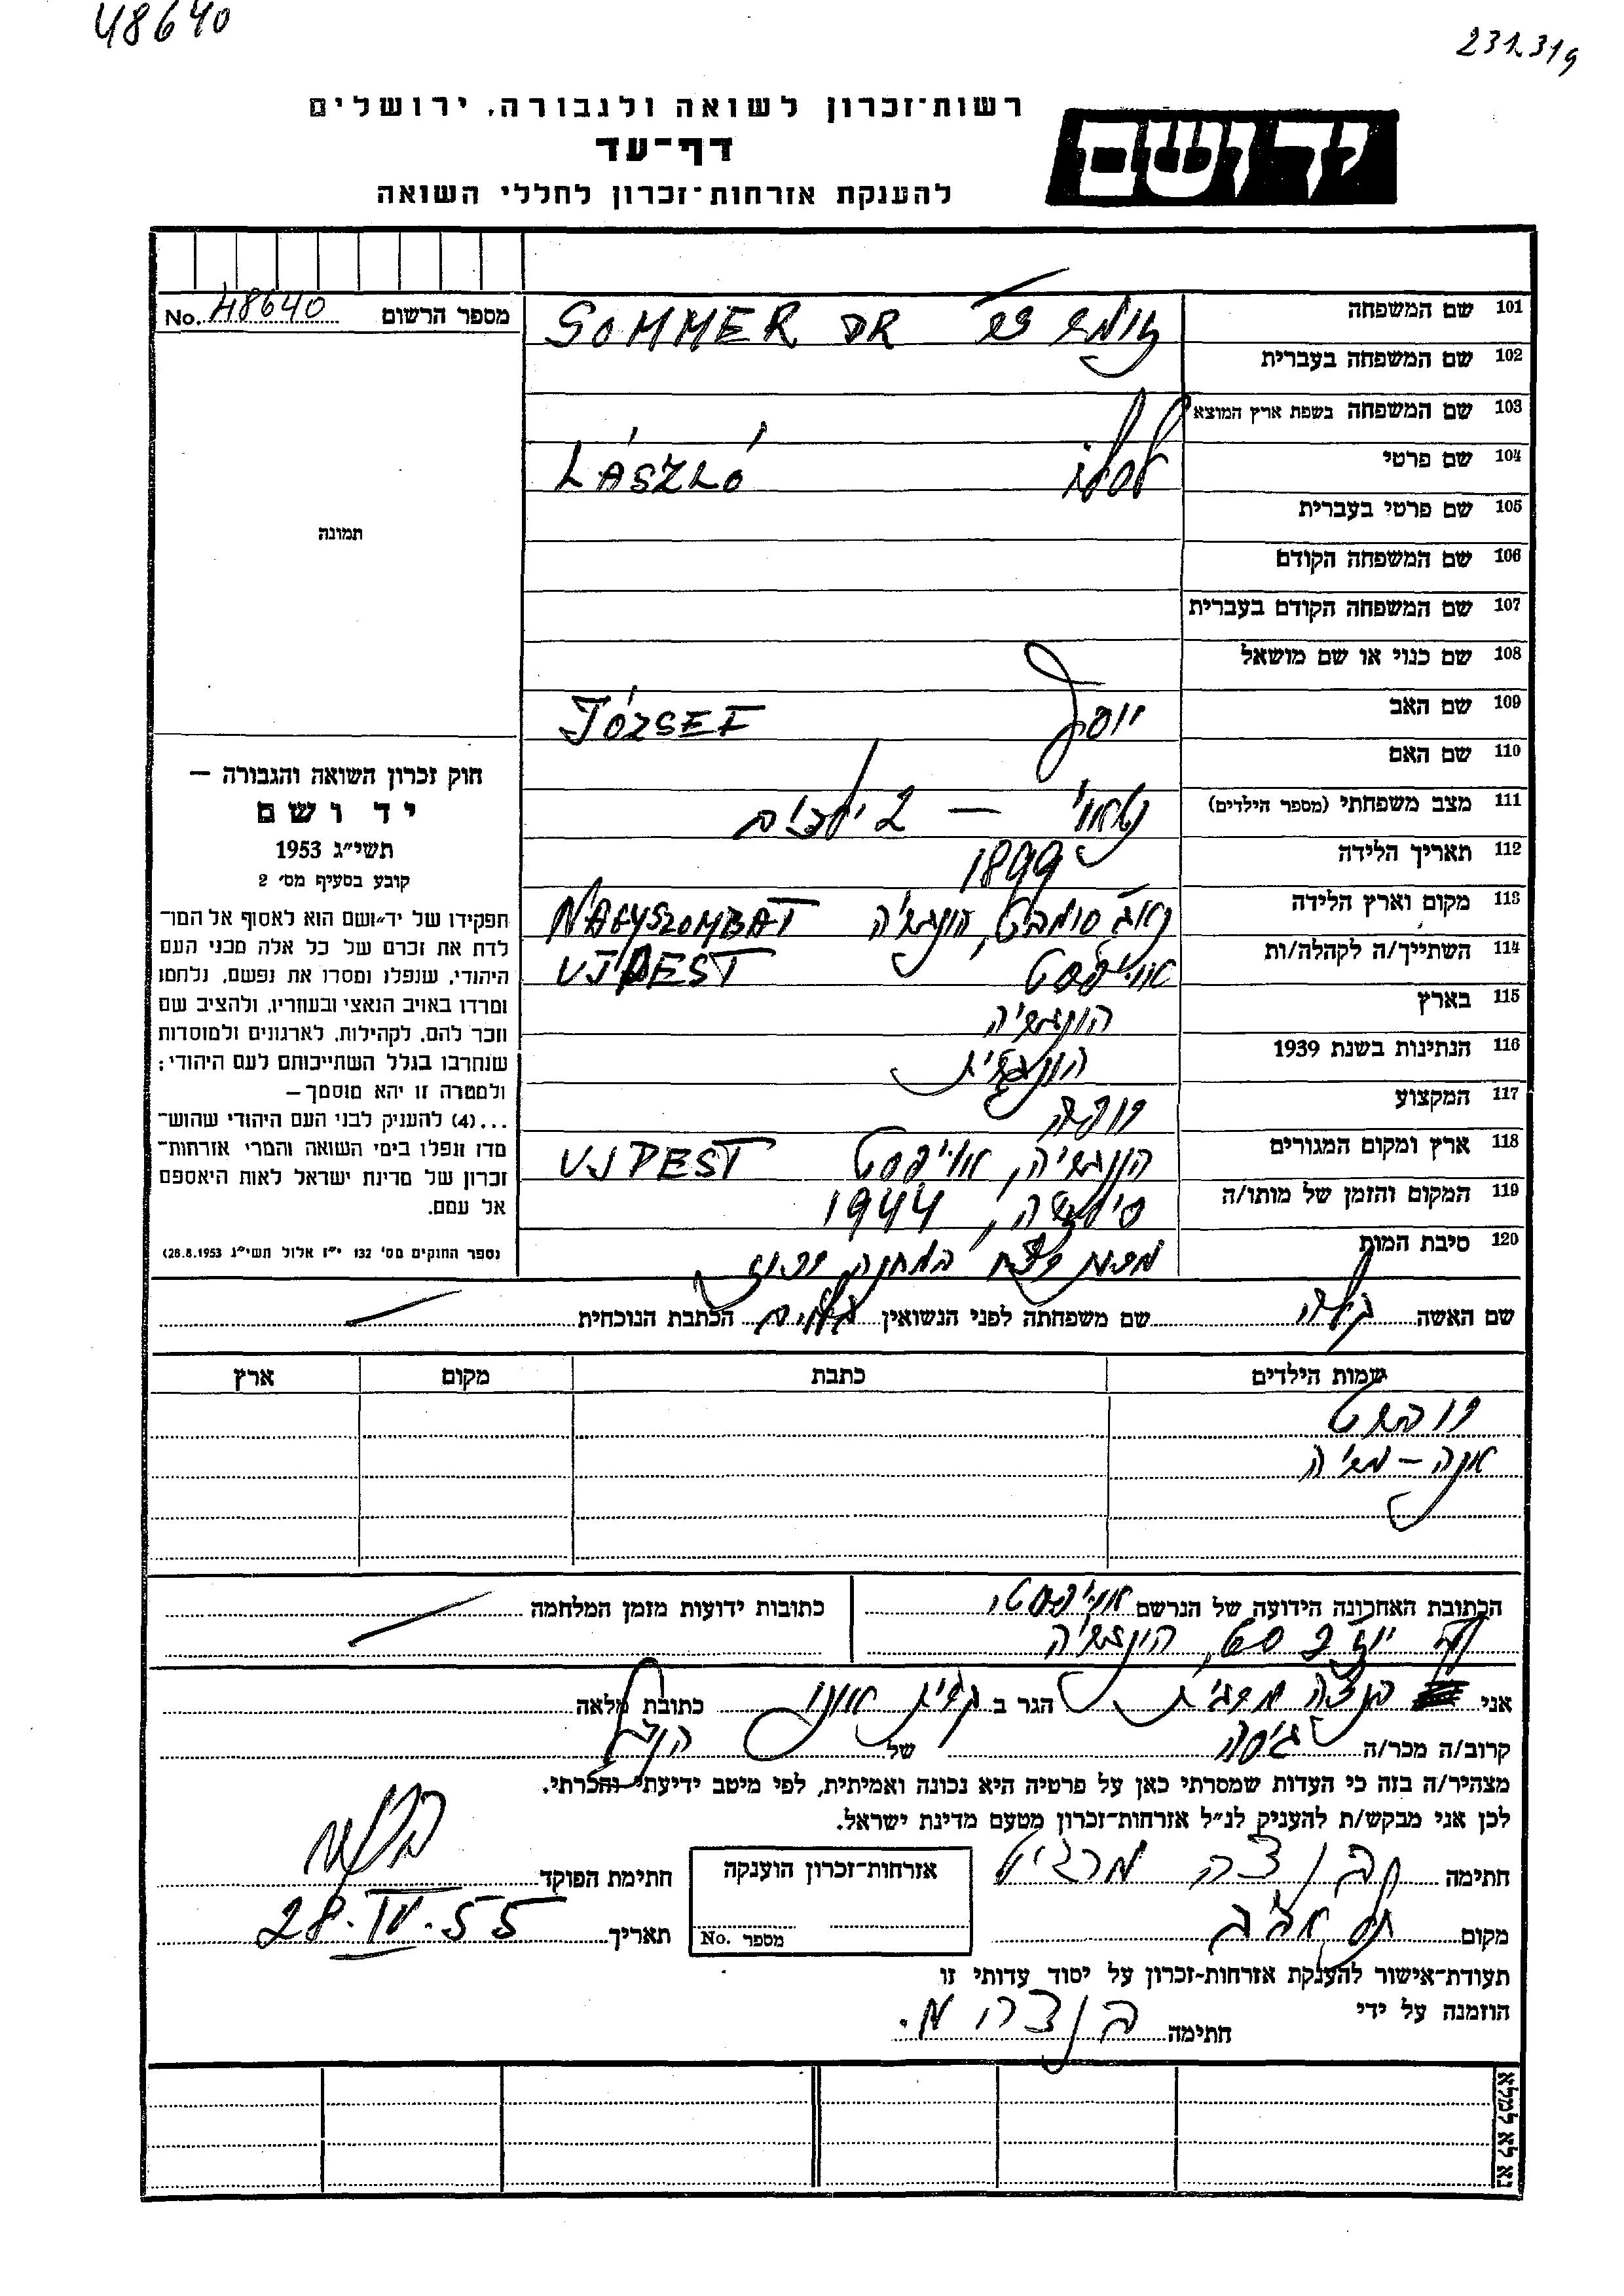 48640
231.319
רשות־זכרון לשואה ולגבורה, ירושלים
דף־עד
להענקת אזרחות־זכרון לחללי השואה
יד ושם
No. 48640 מספר הרשום
101 שם המשפחה SOMMER DR זומר דר
102 שם המשפחה בעברית
103 שם המשפחה בשפת ארץ המוצא
104 שם פרטי לסלו LÁSZLÓ
105 שם פרטי בעברית
106 שם המשפחה הקודם
107 שם המשפחה הקודם בעברית
108 שם כנוי או שם מושאל
109 שם האב יוסף JÓZSEF
110 שם האם
111 מצב משפחתי (מספר הילדים) נשאוי — 2 ילדים
112 תאריך הלידה 1899
113 מקום וארץ הלידה הונגריה NAGYSZOMBAT
114 השתייך/ה לקהלה/ות אויפסט UJPEST
115 בארץ הונגריה
116 הנתינות בשנת 1939 הונגרית
117 המקצוע רופא
118 ארץ ומקום המגורים הונגריה, אויפסט UJPEST
119 המקום והזמן של מותו/ה 1944
120 סיבת המות במחנה רכוז
תמונה
חוק זכרון השואה והגבורה —
יד ושם
תשי״ג 1953
קובע בסעיף מס׳ 2
תפקידו של יד־ושם הוא לאסוף אל המו־
לדת את זכרם של כל אלה מבני העם
היהודי, שנפלו ומסרו את נפשם, נלחמו
ומרדו באויב הנאצי ובעוזריו, ולהציב שם
וזכר להם, לקהילות, לארגונים ולמוסדות
שנחרבו בגלל השתייכותם לעם היהודי;
ולמטרה זו יהא מוסמך —
...(4) להעניק לבני העם היהודי שהוש־
מדו ונפלו בימי השואה והמרי אזרחות־
זכרון של מדינת ישראל לאות היאספם
אל עמם.
(ספר החוקים מס׳ 132 י״ז אלול תשי״ג 28.8.1953)
שם האשה שם משפחתה לפני הנשואין הכתבת הנוכחית
שמות הילדים כתבת מקום ארץ
רוברט
אנה – מריה
הכתובת האחרונה הידועה של הנרשם אויפסט, כתובות ידועות מזמן המלחמה
הונגריה
אני בנצה מרגית הגר ב קרית אונו כתובת מלאה
קרוב/ה מכר/ה גיסה של הנ״ל
מצהיר/ה בזה כי העדות שמסרתי כאן על פרטיה היא נכונה ואמיתית, לפי מיטב ידיעתי והכרתי.
לכן אני מבקש/ת להעניק לנ״ל אזרחות־זכרון מטעם מדינת ישראל.
חתימה בנצה מרגיט אזרחות־זכרון הוענקה חתימת הפוקד
מקום תל אביב מספר No. תאריך 28.IV.55
תעודת־אישור להענקת אזרחות־זכרון על יסוד עדותי זו
הוזמנה על ידי חתימה בנצה מ.
נא לא למלא